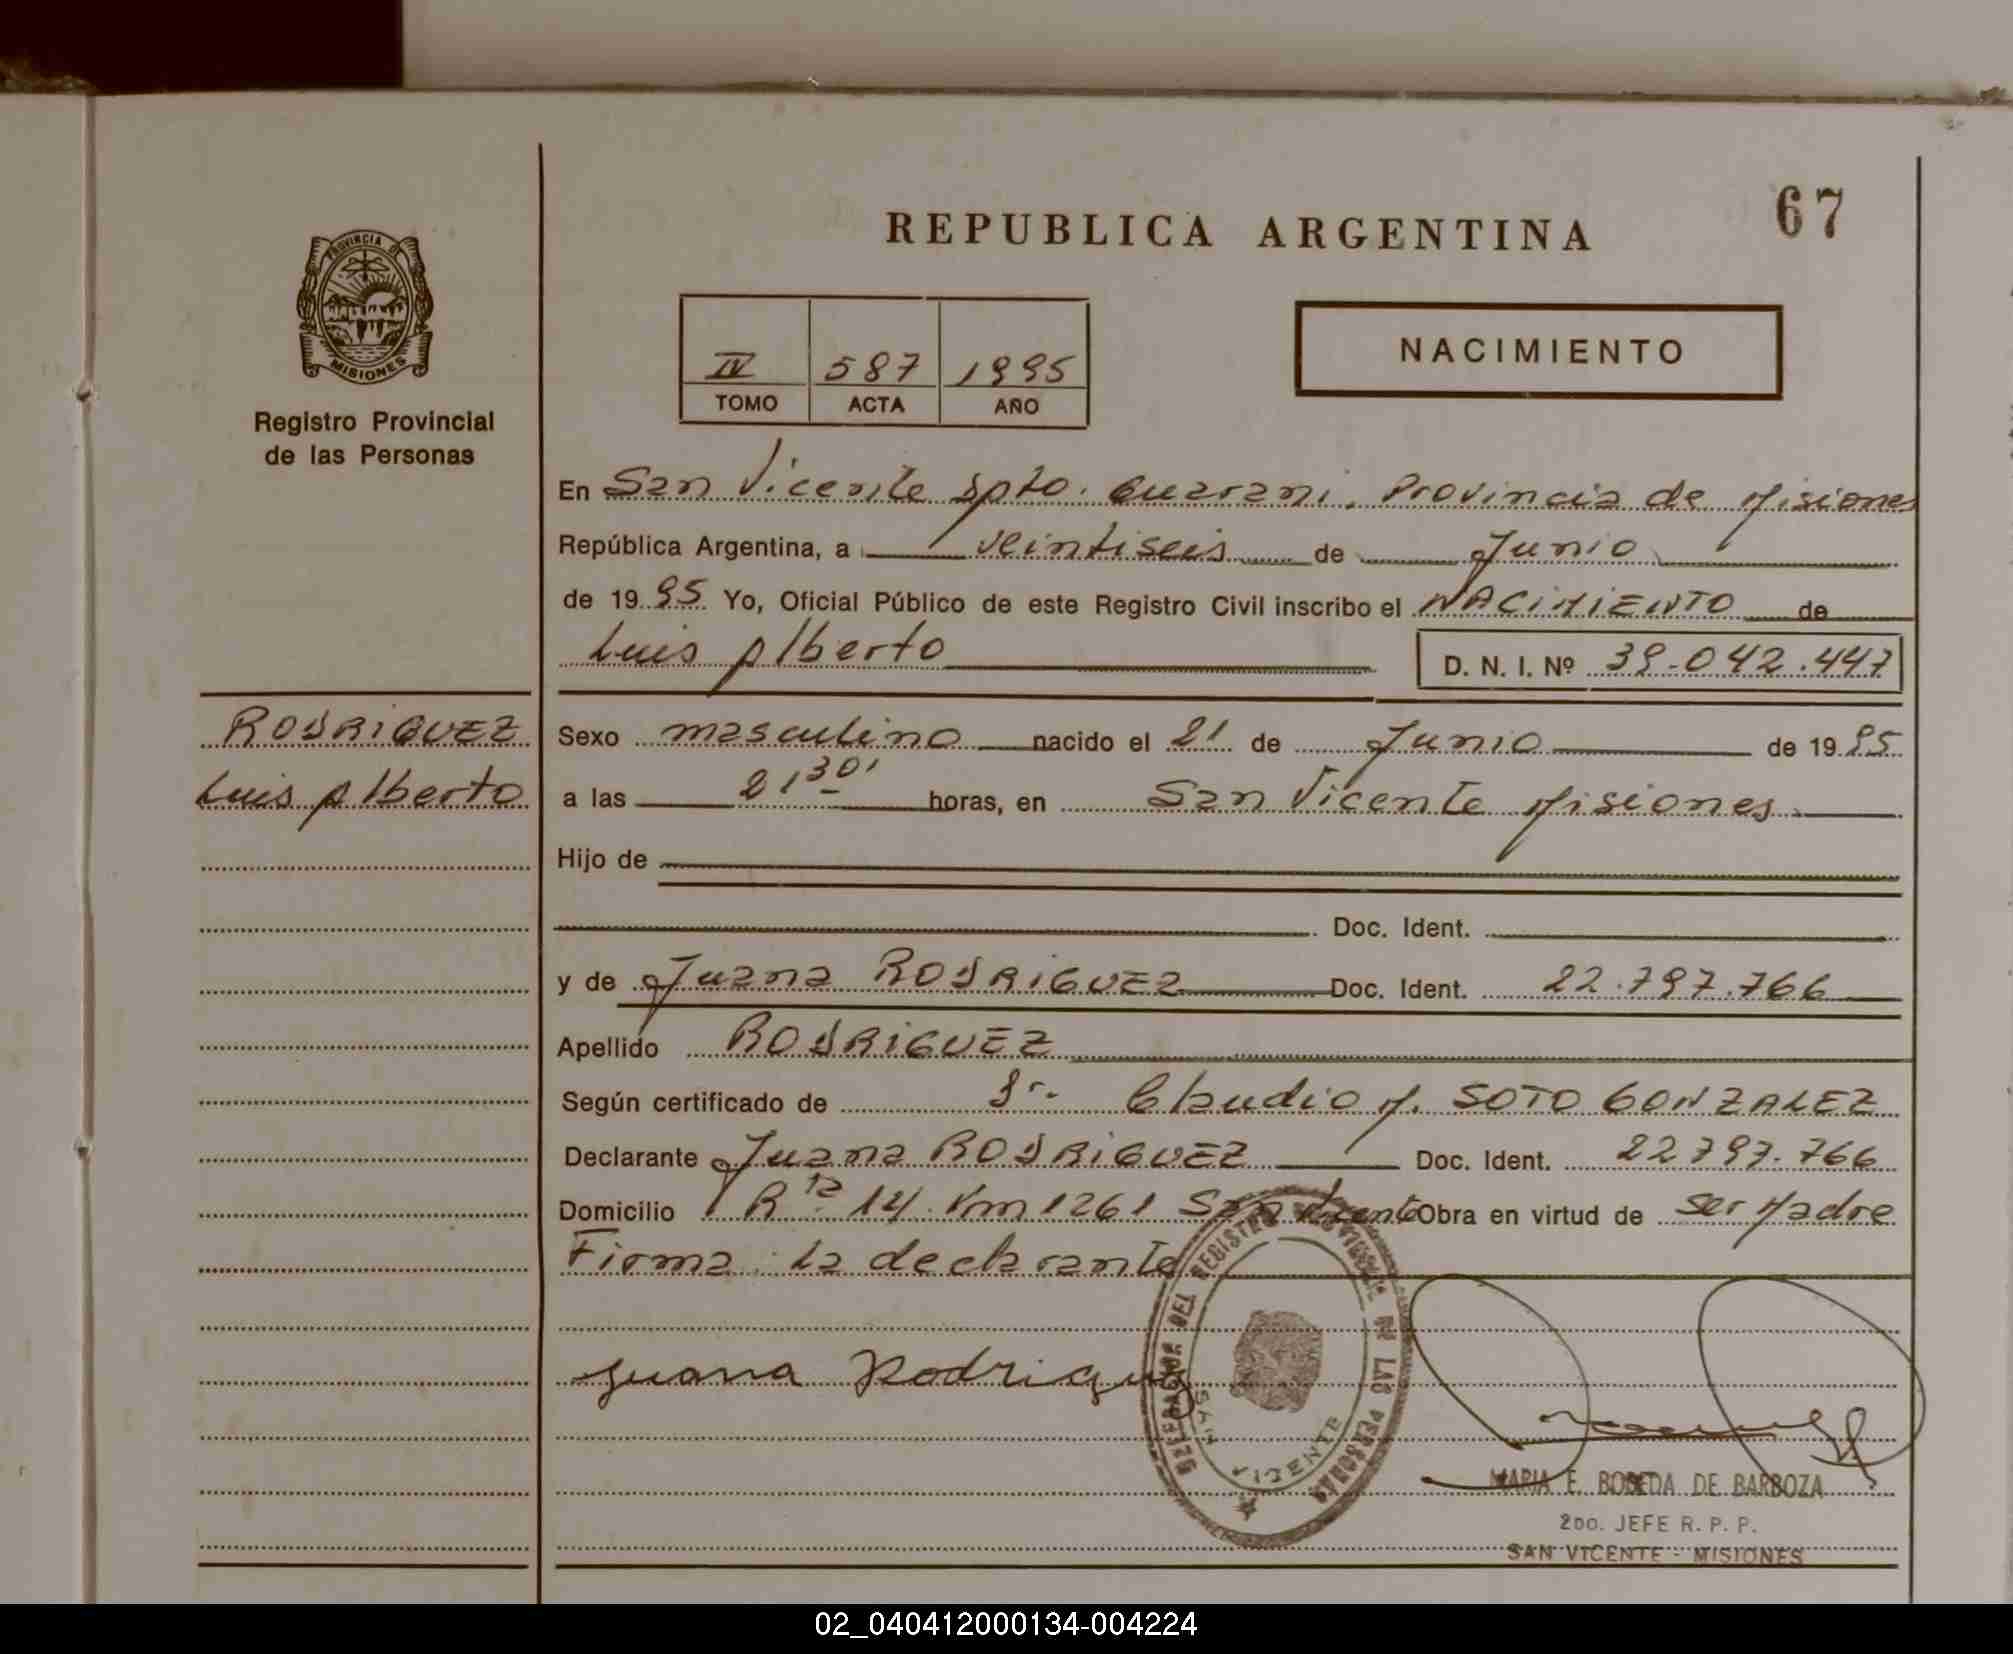 67
REPUBLICA ARGENTINA
PROVINCIA DE
MISIONES
Registro Provincial
de las Personas
NACIMIENTO
IV 587 1995
TOMO ACTA AÑO
En San Vicente Dpto. Guarani, Provincia de Misiones
República Argentina, a veintiseis de Junio
de 1995 Yo, Oficial Público de este Registro Civil inscribo el NACIMIENTO de
Luis Alberto D. N. I. Nº 39.042.447
RODRIGUEZ
Luis Alberto
Sexo masculino nacido el 21 de Junio de 1995
a las 21 30' horas, en San Vicente Misiones
Hijo de
Doc. Ident.
y de Juana RODRIGUEZ Doc. Ident. 22.797.766
Apellido RODRIGUEZ
Según certificado de Dr. Claudio M. SOTO GONZALEZ
Declarante Juana RODRIGUEZ Doc. Ident. 22797.766
Domicilio Rta. 14 Km 1261 San Vicente Obra en virtud de ser Madre
Firma: La declarante
Juana Rodriguez
DEL REGISTRO PROVINCIAL DE LAS PERSONAS
SAN VICENTE
MARIA E. BOBEDA DE BARBOZA
2DO. JEFE R. P. P.
SAN VICENTE - MISIONES
02_040412000134-004224